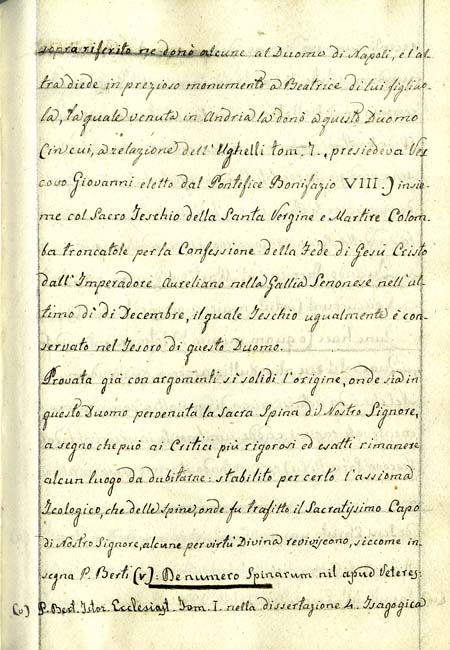 sopra riferito ne donò alcune al Duomo di Napoli, e l'al-
tra diede in prezioso monumento a Beatrice di lui figliuo-
la, la quale venuta in Andria la donò a questo Duomo
(in cui, a relazione dell'Ughelli tom. 7., presiedeva Ves-
covo Giovanni eletto dal Pontefice Bonifazio VIII.) insie-
me col Sacro Teschio della Santa Vergine e Martire Colom-
ba troncatole per la Confessione della Fede di Gesù Cristo
dall'Imperadore Aureliano nella Gallia Senonese nell'ul-
timo dì di Decembre, il quale Teschio ugualmente è con-
servato nel Tesoro di questo Duomo.
Provata già con argomenti sì solidi l'origine, onde sia in
questo Duomo pervenuta la Sacra Spina di Nostro Signore,
a segno che può ai Critici più rigorosi ed esatti rimanere
alcun luogo da dubitarne: stabilito per certo l'assioma
Teologico, che delle spine, onde fu trafitto il Sacratissimo Capo
di Nostro Signore, alcune per virtù Divina reviviscono, siccome in-
segna P. Berti (v): De numero Spinarum nil apud Veteres:
(v) P. Bert. Istor. Ecclesiast. Tom. I. nella dissertazione 4. Isagogica